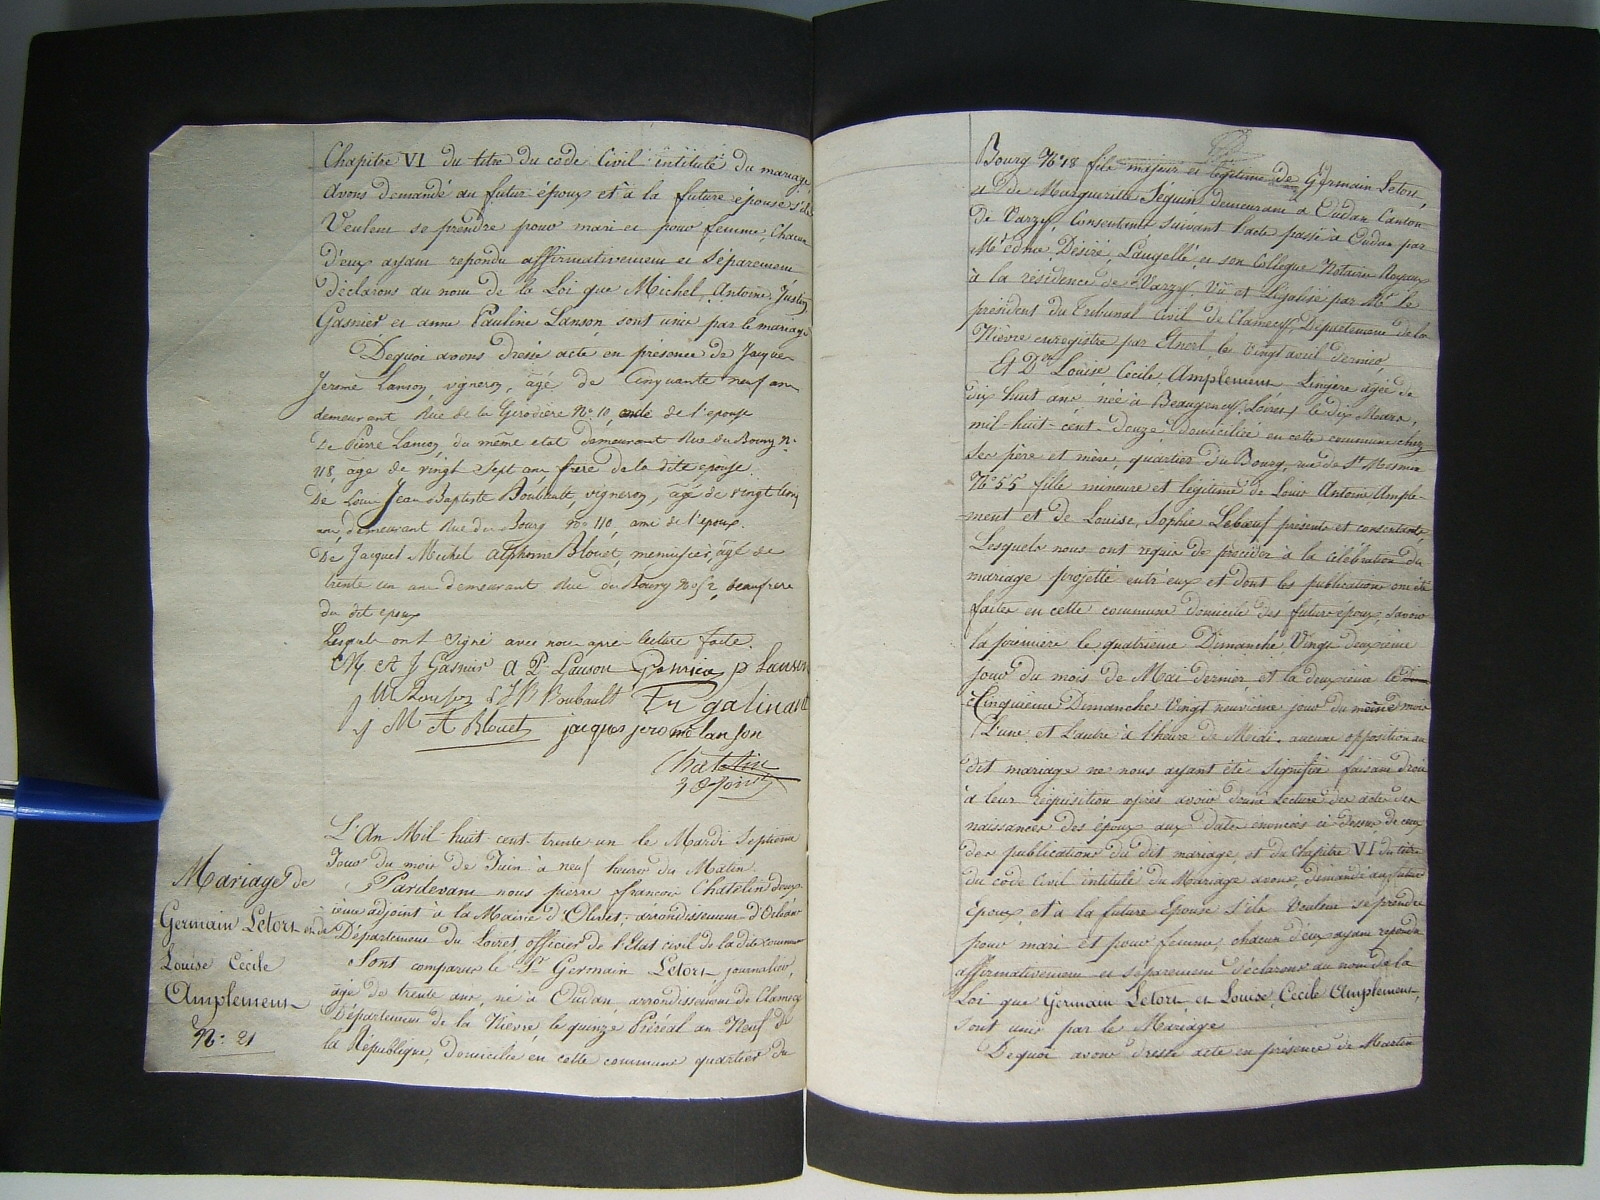 Chapitre VI du titre du code Civil intitulé du mariage,
avons demandé au futur époux et à la future épouse s'ils
Veulent se prendre pour mari et pour femme, chacun
d'eux ayant repondu affirmativement et Séparement
déclarons au nom de la Loi que Michel, Antoine, Justin
Gasnier et anne Pauline Lanson, sont unis par le mariage
Dequoi avons dressé acte en présence de Jacques
Jerome Lanson, vigneron, âgé de Cinquante neuf ans
demeurant Rue de la Girodière No 10, oncle de l'epouse
De Pierre Lanson, du même etat demeurant Rue du Bourg No
118, âgé de vingt sept ans frere de la dite epouse.
De Louis Jean Baptiste Boubault, vigneron, âgé de vingt trois
ans, demeurant Rue du Bourg No 110, ami de l'epoux.
De Jacques Michel alphonse Blouet, menuisier, âgé de
trente un ans demeurant Rue du Bourg No 52, beaufrere
du dit epoux
Lesquels ont signé avec nous apres lecture faite.
M A J Gasnier A P Lanson Gasnier p Lanson
L J B Boubault galinant
J M A Blouet jacques jerome lanson
Chatelin
adjoint
L'An Mil huit cent trente un le Mardi Septieme
Jour du mois de Juin à neuf heures du Matin
Pardevant nous pierre francois Chatelin deux-
ième adjoint à la Mairie d'Olivet, arrondissement d'Orléans
Département du Loiret, officier de l'Etat civil de la dite commune
Sont comparus le Sr Germain Letors journalier,
âgé de trente ans, né à Oudan, arrondissement de Clamecy
Département de la Nièvre, le quinze Prairial an Neuf de
la République, domicilié en cette commune quartier du
Mariage de
Germain Letors et de
Louise Cécile
Amplement
No 21
Bourg No 18 fils majeur et légitime de Germain Letors,
et de Marguerite Séguin demeurant à Oudan Canton
de Varzy, Consentants suivant l'acte passé à Oudan par
Me edme, Désiré, Laugellé, et son Collegue Notaires Royaux
à la résidence de Varzy. Vu et Légalisé par Mr le
président du Tribunal Civil de Clamecy, Département de la
Nièvre enregistré par le vingt avril dernier,
Et Dlle Louise Cécile, Amplement Lingère âgée de
dix huit ans née à Beaugency (Loiret) le dix Mars,
mil-huit-cent-douze, Domiciliée en cette commune chez
ses père et mère, quartier du Bourg, rue de St Mesmin
No 55 fille mineure et légitime de Louis Antoine Ample-
ment et de Louise, Sophie Leboeuf présents et consentants,
Lesquels nous ont requis de procéder à la célébration du
mariage projetté entr'eux et dont les publications ont été
faites en cette commune domicile des futurs epoux, savoir
la première le quatrieme Dimanche, Vingt deuxième
jour du mois de Mai dernier et la deuxieme le
Cinquieme Dimanche Vingt neuvième jour du même mois
L'une et L'autre à l'heure de Midi. aucune opposition au
dit mariage ne nous ayant été signifiée faisant droit
à leur réquisition après avoir donné Lecture des actes de
naissances des époux aux dates énoncées ci dessus de ceux
des publications du dit mariage, et du Chapitre VI du titre
du code Civil intitulé du Mariage avons, demandé au futur
Epoux, et à la future Epouse s'ils Veulent se prendre
pour mari et pour femme, chacun d'eux ayant repondu
affirmativement et séparement déclarons au nom de la
Loi que Germain Letors et Louise, Cécile Amplement,
sont unis par le Mariage
Dequoi avons dressé acte en présence de Martin